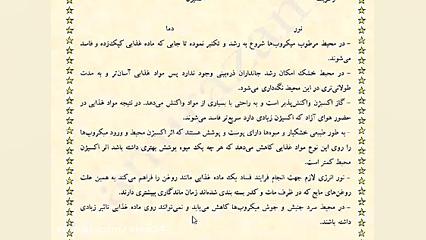 نور دما
- در محیط مرطوب میکروب‌ها شروع به رشد و تکثیر نموده تا جایی که ماده غذایی کپک‌زده و فاسد
می‌شوند.
- در محیط خشک امکان رشد جانداران ذره‌بینی وجود ندارد پس مواد غذایی آسان‌تر و به مدت
طولانی‌تری در این محیط نگه‌داری می‌شود.
- گاز اکسیژن واکنش‌پذیر است و به راحتی با بسیاری از مواد واکنش می‌دهد. در نتیجه مواد غذایی در
حضور هوای آزاد که اکسیژن زیادی دارد سریع‌تر فاسد می‌شوند.
- به طور طبیعی خشکبار و میوه‌ها دارای پوست و پوشش هستند که اثر اکسیژن محیط و ورود میکروب‌ها
را روی این نوع مواد غذایی کاهش می‌دهد که هر چه یک میوه پوشش بهتری داشته باشد اثر اکسیژن
محیط کمتر است.
- نور انرژی لازم جهت انجام فرایند فساد یک ماده غذایی مانند روغن را فراهم می‌کند به همین علت
روغن‌های مایع که در ظرف مات و کدر بسته بندی شده‌اند زمان ماندگاری بیشتری دارند.
- در محیط سرد جنبش و جوش میکروب‌ها کاهش می‌یابد و نمی‌توانند روی ماده غذایی تاثیر زیادی
داشته باشند.